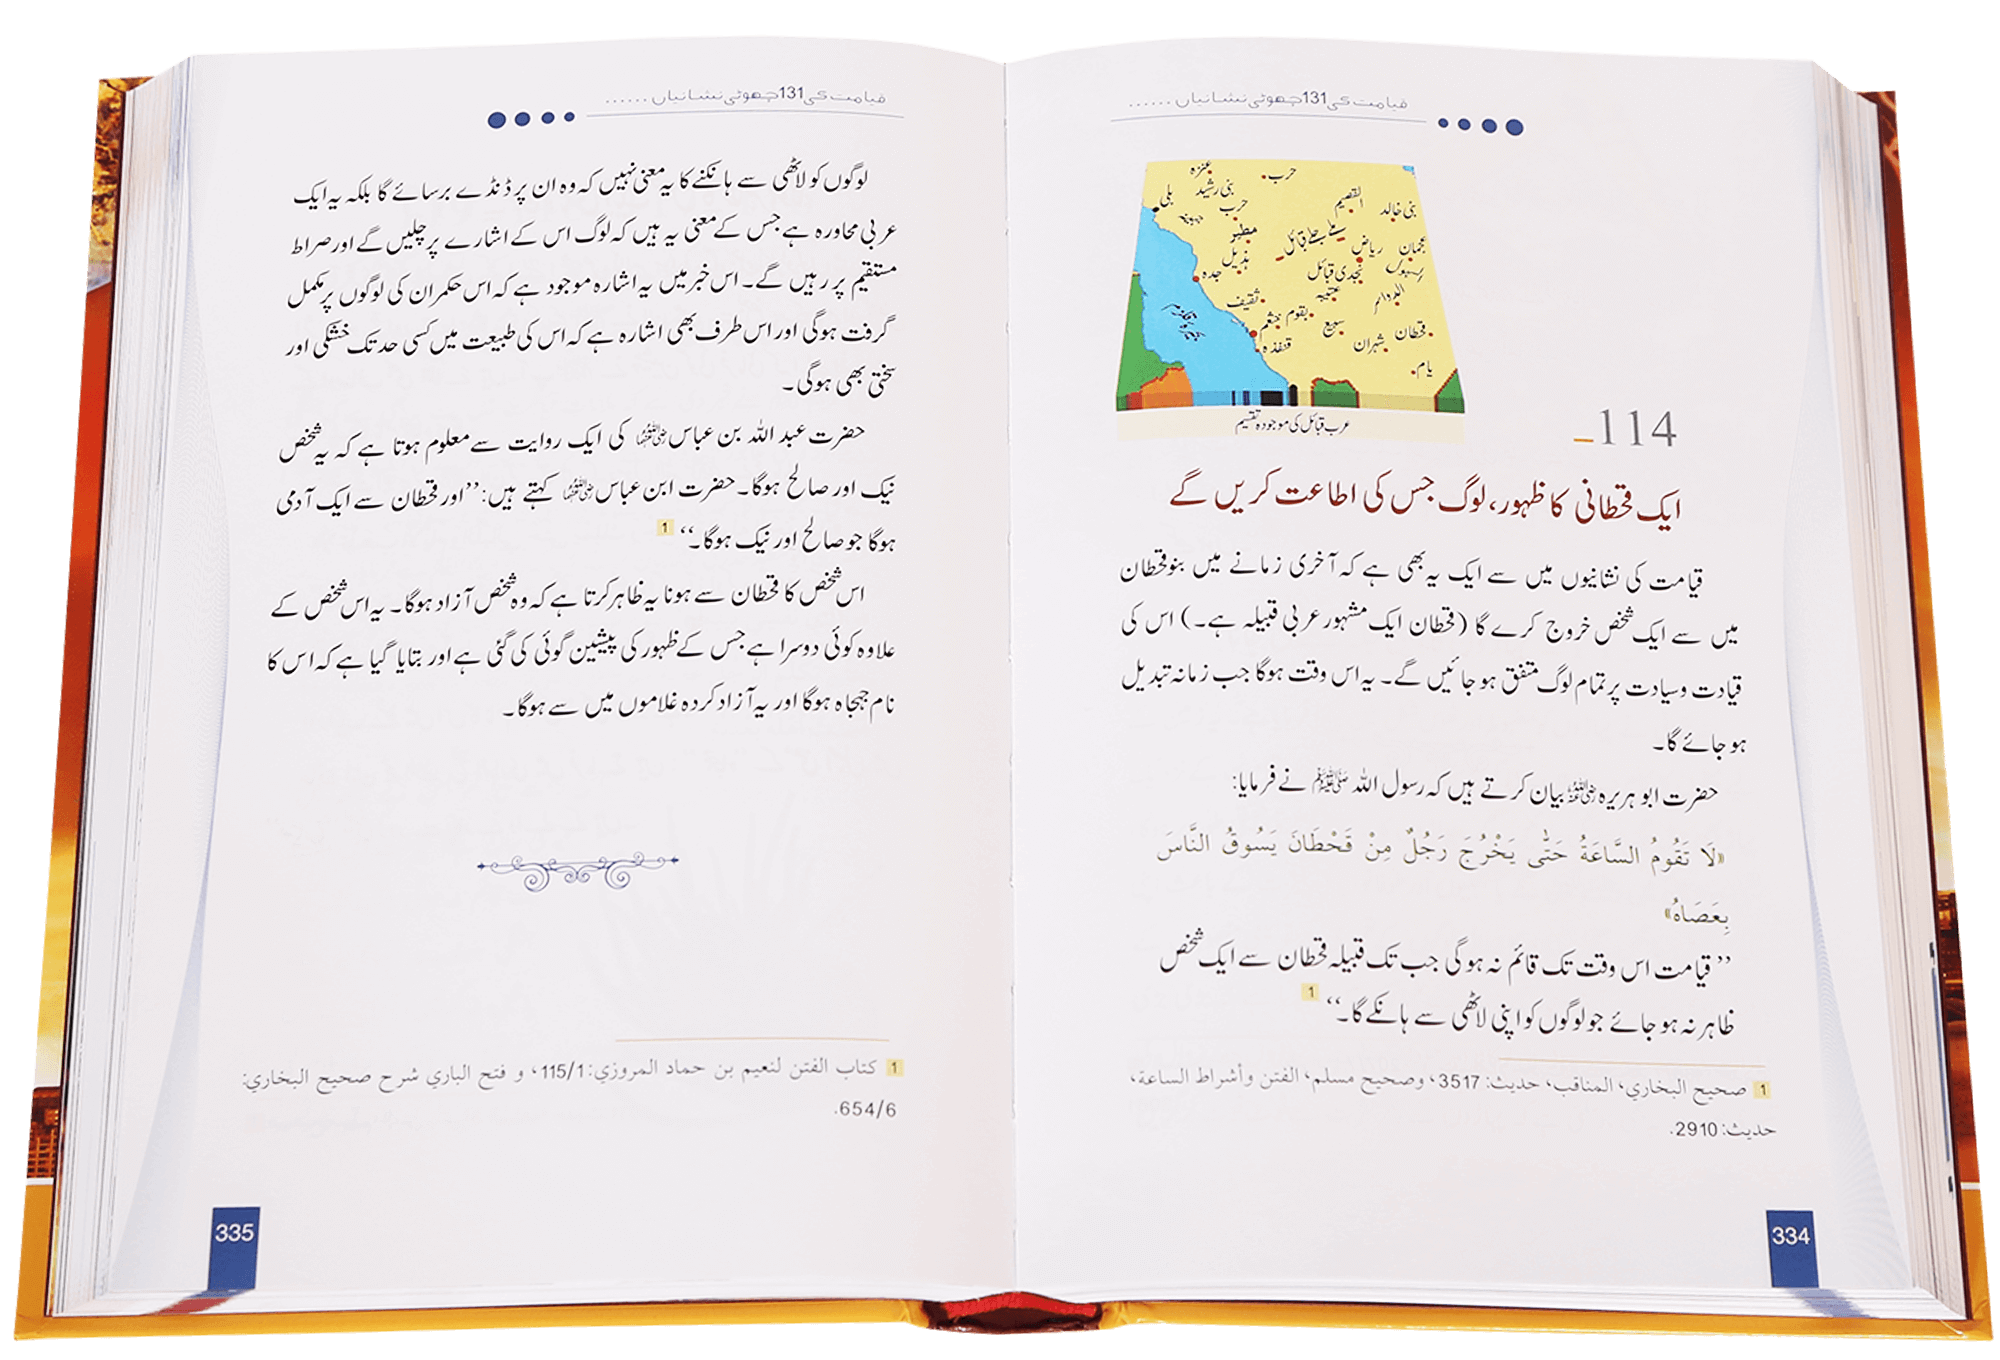 قیامت کی 131 چھوٹی نشانیاں ......
عنزہ
حرب
بنی رشید
بلی
حرب
القصیم
بنی خالد
مطیر
ہذیل
ریاض
عجمان
نجدی قبائل
جدہ
عتیبہ
ثقیف
بقوم
خثعم
سبیع
قحطان
قنفذہ
شہران
یام
عرب قبائل کی موجودہ تقسیم
114
ایک قحطانی کا ظہور، لوگ جس کی اطاعت کریں گے
قیامت کی نشانیوں میں سے ایک یہ بھی ہے کہ آخری زمانے میں بنو قحطان
میں سے ایک شخص خروج کرے گا (قحطان ایک مشہور عربی قبیلہ ہے۔) اس کی
قیادت وسیادت پر تمام لوگ متفق ہو جائیں گے۔ یہ اس وقت ہوگا جب زمانہ تبدیل
ہو جائے گا۔
حضرت ابو ہریرہ رضی اللہ عنہ بیان کرتے ہیں کہ رسول اللہ ﷺ نے فرمایا:
«لَا تَقُومُ السَّاعَةُ حَتَّى يَخْرُجَ رَجُلٌ مِنْ قَحْطَانَ يَسُوقُ النَّاسَ
بِعَصَاهُ»
’’قیامت اس وقت تک قائم نہ ہوگی جب تک قبیلہ قحطان سے ایک شخص
ظاہر نہ ہو جائے جو لوگوں کو اپنی لاٹھی سے ہانکے گا۔‘‘ 1
1 صحيح البخاري، المناقب، حديث: 3517، وصحيح مسلم، الفتن وأشراط الساعة،
حديث: 2910.
334
قیامت کی 131 چھوٹی نشانیاں ......
لوگوں کو لاٹھی سے ہانکنے کا یہ معنی نہیں کہ وہ ان پر ڈنڈے برسائے گا بلکہ یہ ایک
عربی محاورہ ہے جس کے معنی یہ ہیں کہ لوگ اس کے اشارے پر چلیں گے اور صراط
مستقیم پر رہیں گے۔ اس خبر میں یہ اشارہ موجود ہے کہ اس حکمران کی لوگوں پر مکمل
گرفت ہوگی اور اس طرف بھی اشارہ ہے کہ اس کی طبیعت میں کسی حد تک خشکی اور
سختی بھی ہوگی۔
حضرت عبد اللہ بن عباس رضی اللہ عنہما کی ایک روایت سے معلوم ہوتا ہے کہ یہ شخص
نیک اور صالح ہوگا۔ حضرت ابن عباس رضی اللہ عنہما کہتے ہیں: ’’اور قحطان سے ایک آدمی
ہوگا جو صالح اور نیک ہوگا۔‘‘ 1
اس شخص کا قحطان سے ہونا یہ ظاہر کرتا ہے کہ وہ شخص آزاد ہوگا۔ یہ اس شخص کے
علاوہ کوئی دوسرا ہے جس کے ظہور کی پیشین گوئی کی گئی ہے اور بتایا گیا ہے کہ اس کا
نام جہجاہ ہوگا اور یہ آزاد کردہ غلاموں میں سے ہوگا۔
1 كتاب الفتن لنعيم بن حماد المروزي: 115/1، و فتح الباري شرح صحيح البخاري:
654/6.
335